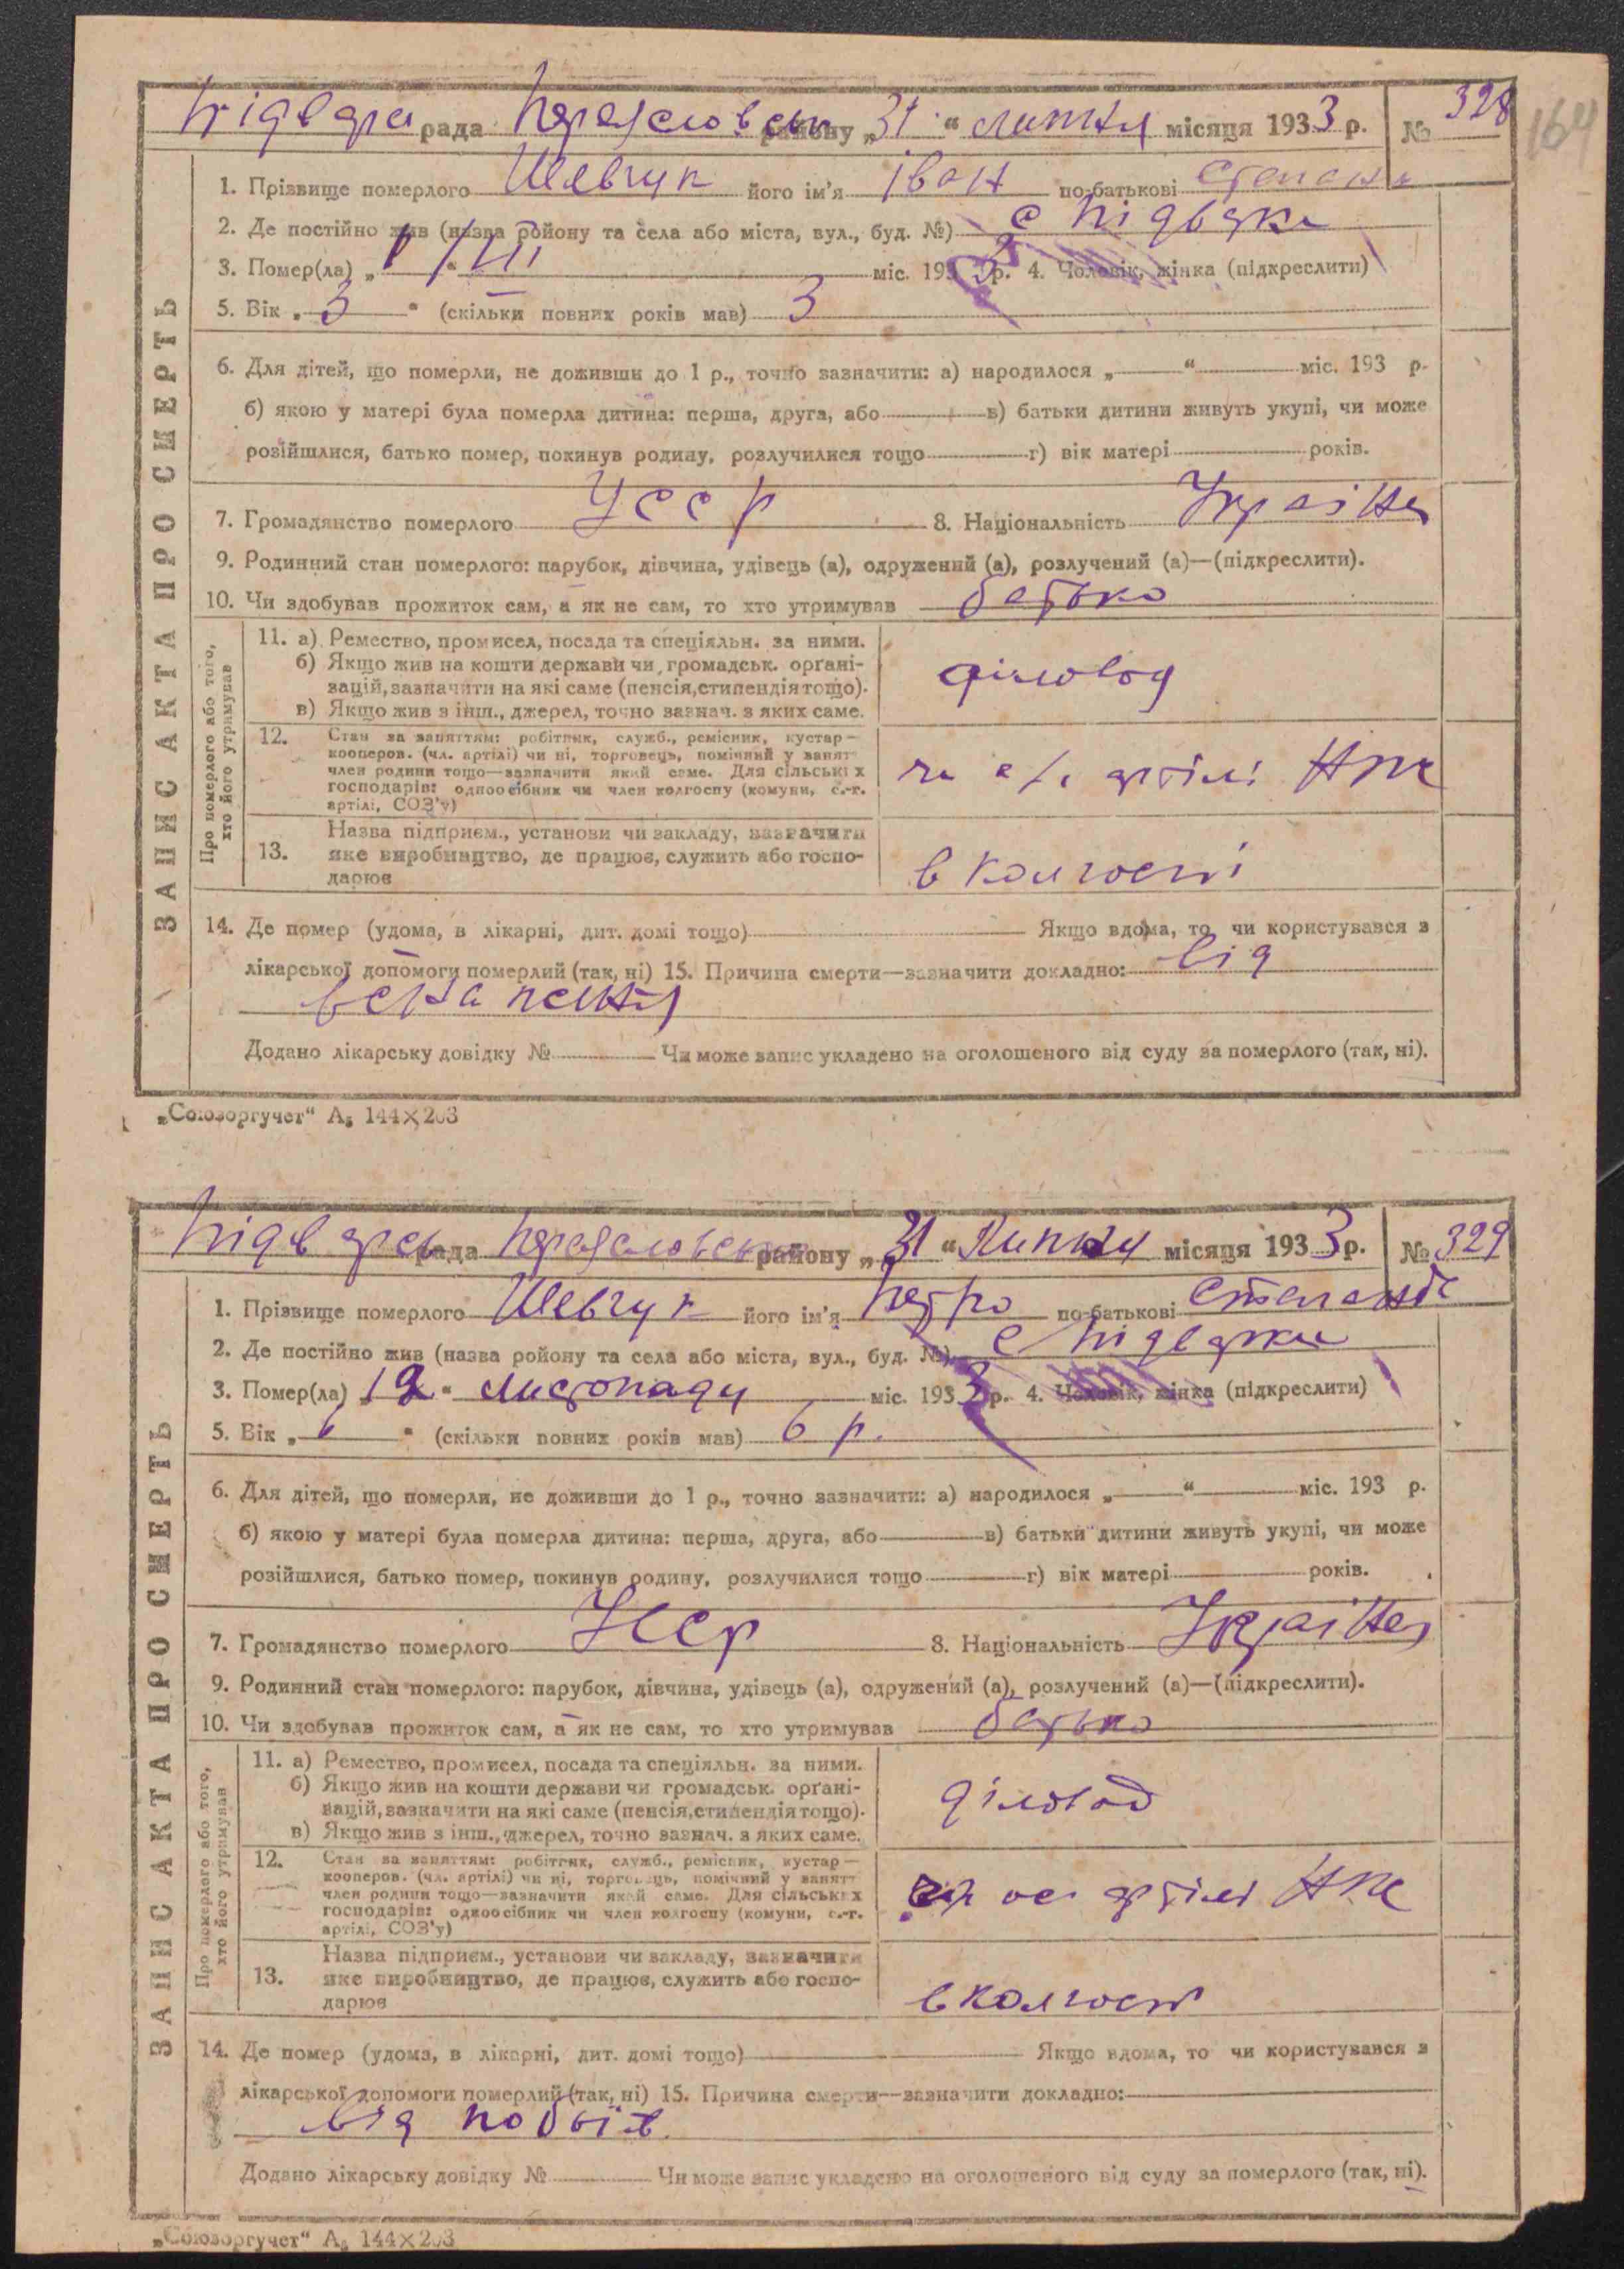 Підварки рада Переяславськ району „31“ липня місяця 1933 р. № 328
164
ЗАПИС АКТА ПРО СМЕРТЬ
1. Прізвище померлого Шевчук його ім'я Іван по-батькові Степанн
2. Де постійно жив (назва ройону та села або міста, вул., буд. №) с Підварки
3. Помер(ла) „1/III“ міс. 1933р. 4. Чоловік, жінка (підкреслити)
5. Вік „3“ (скільки повних років мав) 3
6. Для дітей, що померли, не доживши до 1 р., точно зазначити: а) народилося „ “ міс. 193 р.
б) якою у матері була померла дитина: перша, друга, або в) батьки дитини живуть укупі, чи може
розійшлися, батько помер, покинув родину, розлучилися тощо г) вік матері років.
7. Громадянство померлого УССР 8. Національність Україне
9. Родинний стан померлого: парубок, дівчина, удівець (а), одружений (а), розлучений (а)—(підкреслити).
10. Чи здобував прожиток сам, а як не сам, то хто утримував батько
Про померлого або того, хто його утримував
11. а) Ремество, промисел, посада та спеціяльн. за ними.
б) Якщо жив на кошти держави чи громадськ. органі-
зацій, зазначити на які саме (пенсія, стипендія тощо).
в) Якщо жив з інш., джерел, точно зазнач. з яких саме.
діловод
12. Стан за заняттям: робітник, служб., ремісник, кустар—
кооперов. (чл. артілі) чи ні, торговець, помічний у занятт
член родини тощо—зазначити який саме. Для сільських
господарів: одноосібник чи член колгоспу (комуни, с.-г.
артілі, СОЗ'у)
артілі НПС
13. Назва підприєм., установи чи закладу, зазначити
яке виробництво, де працює, служить або госпо-
дарює
в колгоспі
14. Де помер (удома, в лікарні, дит. домі тощо) Якщо вдома, то чи користувався з
лікарської допомоги померлий (так, ні) 15. Причина смерти—зазначити докладно: від
Додано лікарську довідку № Чи може запис укладено на оголошеного від суду за померлого (так, ні).
„Союзоргучет“ А₅ 144×203
Підварськ рада Переяславськ району „31“ Липня місяця 1933 р. № 329
ЗАПИС АКТА ПРО СМЕРТЬ
1. Прізвище померлого Шевчук його ім'я Петро по-батькові Степанов
2. Де постійно жив (назва ройону та села або міста, вул., буд. №) с Підварки
3. Помер(ла) „12“ листопаду міс. 1933р. 4. Чоловік, жінка (підкреслити)
5. Вік „6“ (скільки повних років мав) 6 р.
6. Для дітей, що померли, не доживши до 1 р., точно зазначити: а) народилося „ “ міс. 193 р.
б) якою у матері була померла дитина: перша, друга, або в) батьки дитини живуть укупі, чи може
розійшлися, батько помер, покинув родину, розлучилися тощо г) вік матері років.
7. Громадянство померлого УССР 8. Національність Україне
9. Родинний стан померлого: парубок, дівчина, удівець (а), одружений (а), розлучений (а)—(підкреслити).
10. Чи здобував прожиток сам, а як не сам, то хто утримував батько
Про померлого або того, хто його утримував
11. а) Ремество, промисел, посада та спеціяльн. за ними.
б) Якщо жив на кошти держави чи громадськ. органі-
зацій, зазначити на які саме (пенсія, стипендія тощо).
в) Якщо жив з інш., джерел, точно зазнач. з яких саме.
діловод
12. Стан за заняттям: робітник, служб., ремісник, кустар—
кооперов. (чл. артілі) чи ні, торговець, помічний у занятт
член родини тощо—зазначити який саме. Для сільських
господарів: одноосібник чи член колгоспу (комуни, с.-г.
артілі, СОЗ'у)
артілі НПС
13. Назва підприєм., установи чи закладу, зазначити
яке виробництво, де працює, служить або госпо-
дарює
в колгосп
14. Де помер (удома, в лікарні, дит. домі тощо) Якщо вдома, то чи користувався з
лікарської допомоги померлий (так, ні) 15. Причина смерти—зазначити докладно:
від побоїв
Додано лікарську довідку № Чи може запис укладено на оголошеного від суду за померлого (так, ні).
„Союзоргучет“ А₅ 144×203